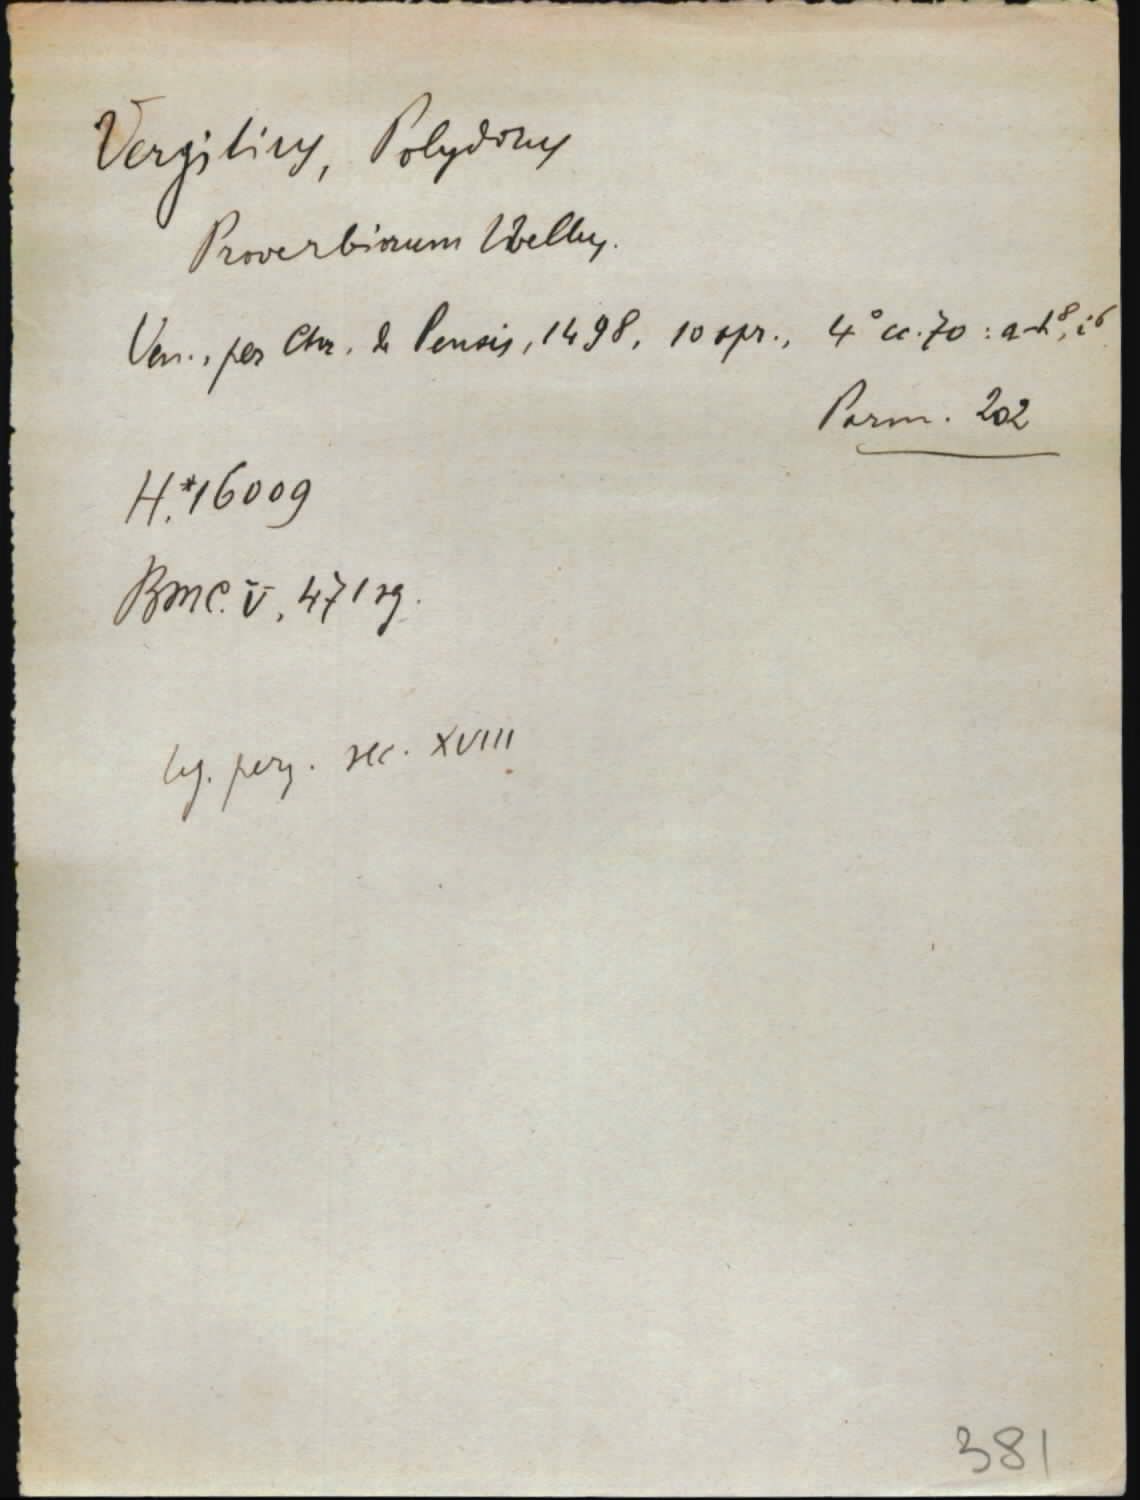 Vergilius, Polydorus
Proverbiorum libellus.
Ven., per Chr. de Pensis, 1498, 10 apr., 4° cc. 70 : a-h⁸, i⁶
Parm. 202
H.*16009
BMC. V, 471 sg.
leg. perg. sec. XVIII
381